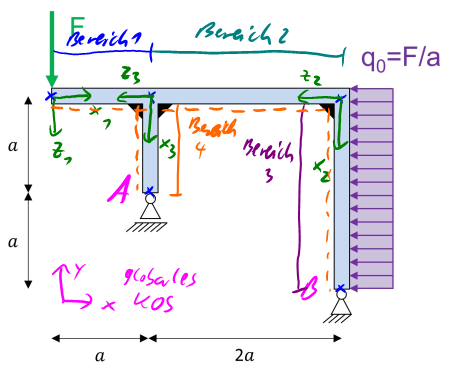 F
Bereich 1
Bereich 2
q₀=F/a
z₃
z₂
x₁
z₁
x₃
Bereich
4
Bereich
3
x₂
a
A
a
Y
x
globales
KOS
B
a
2a